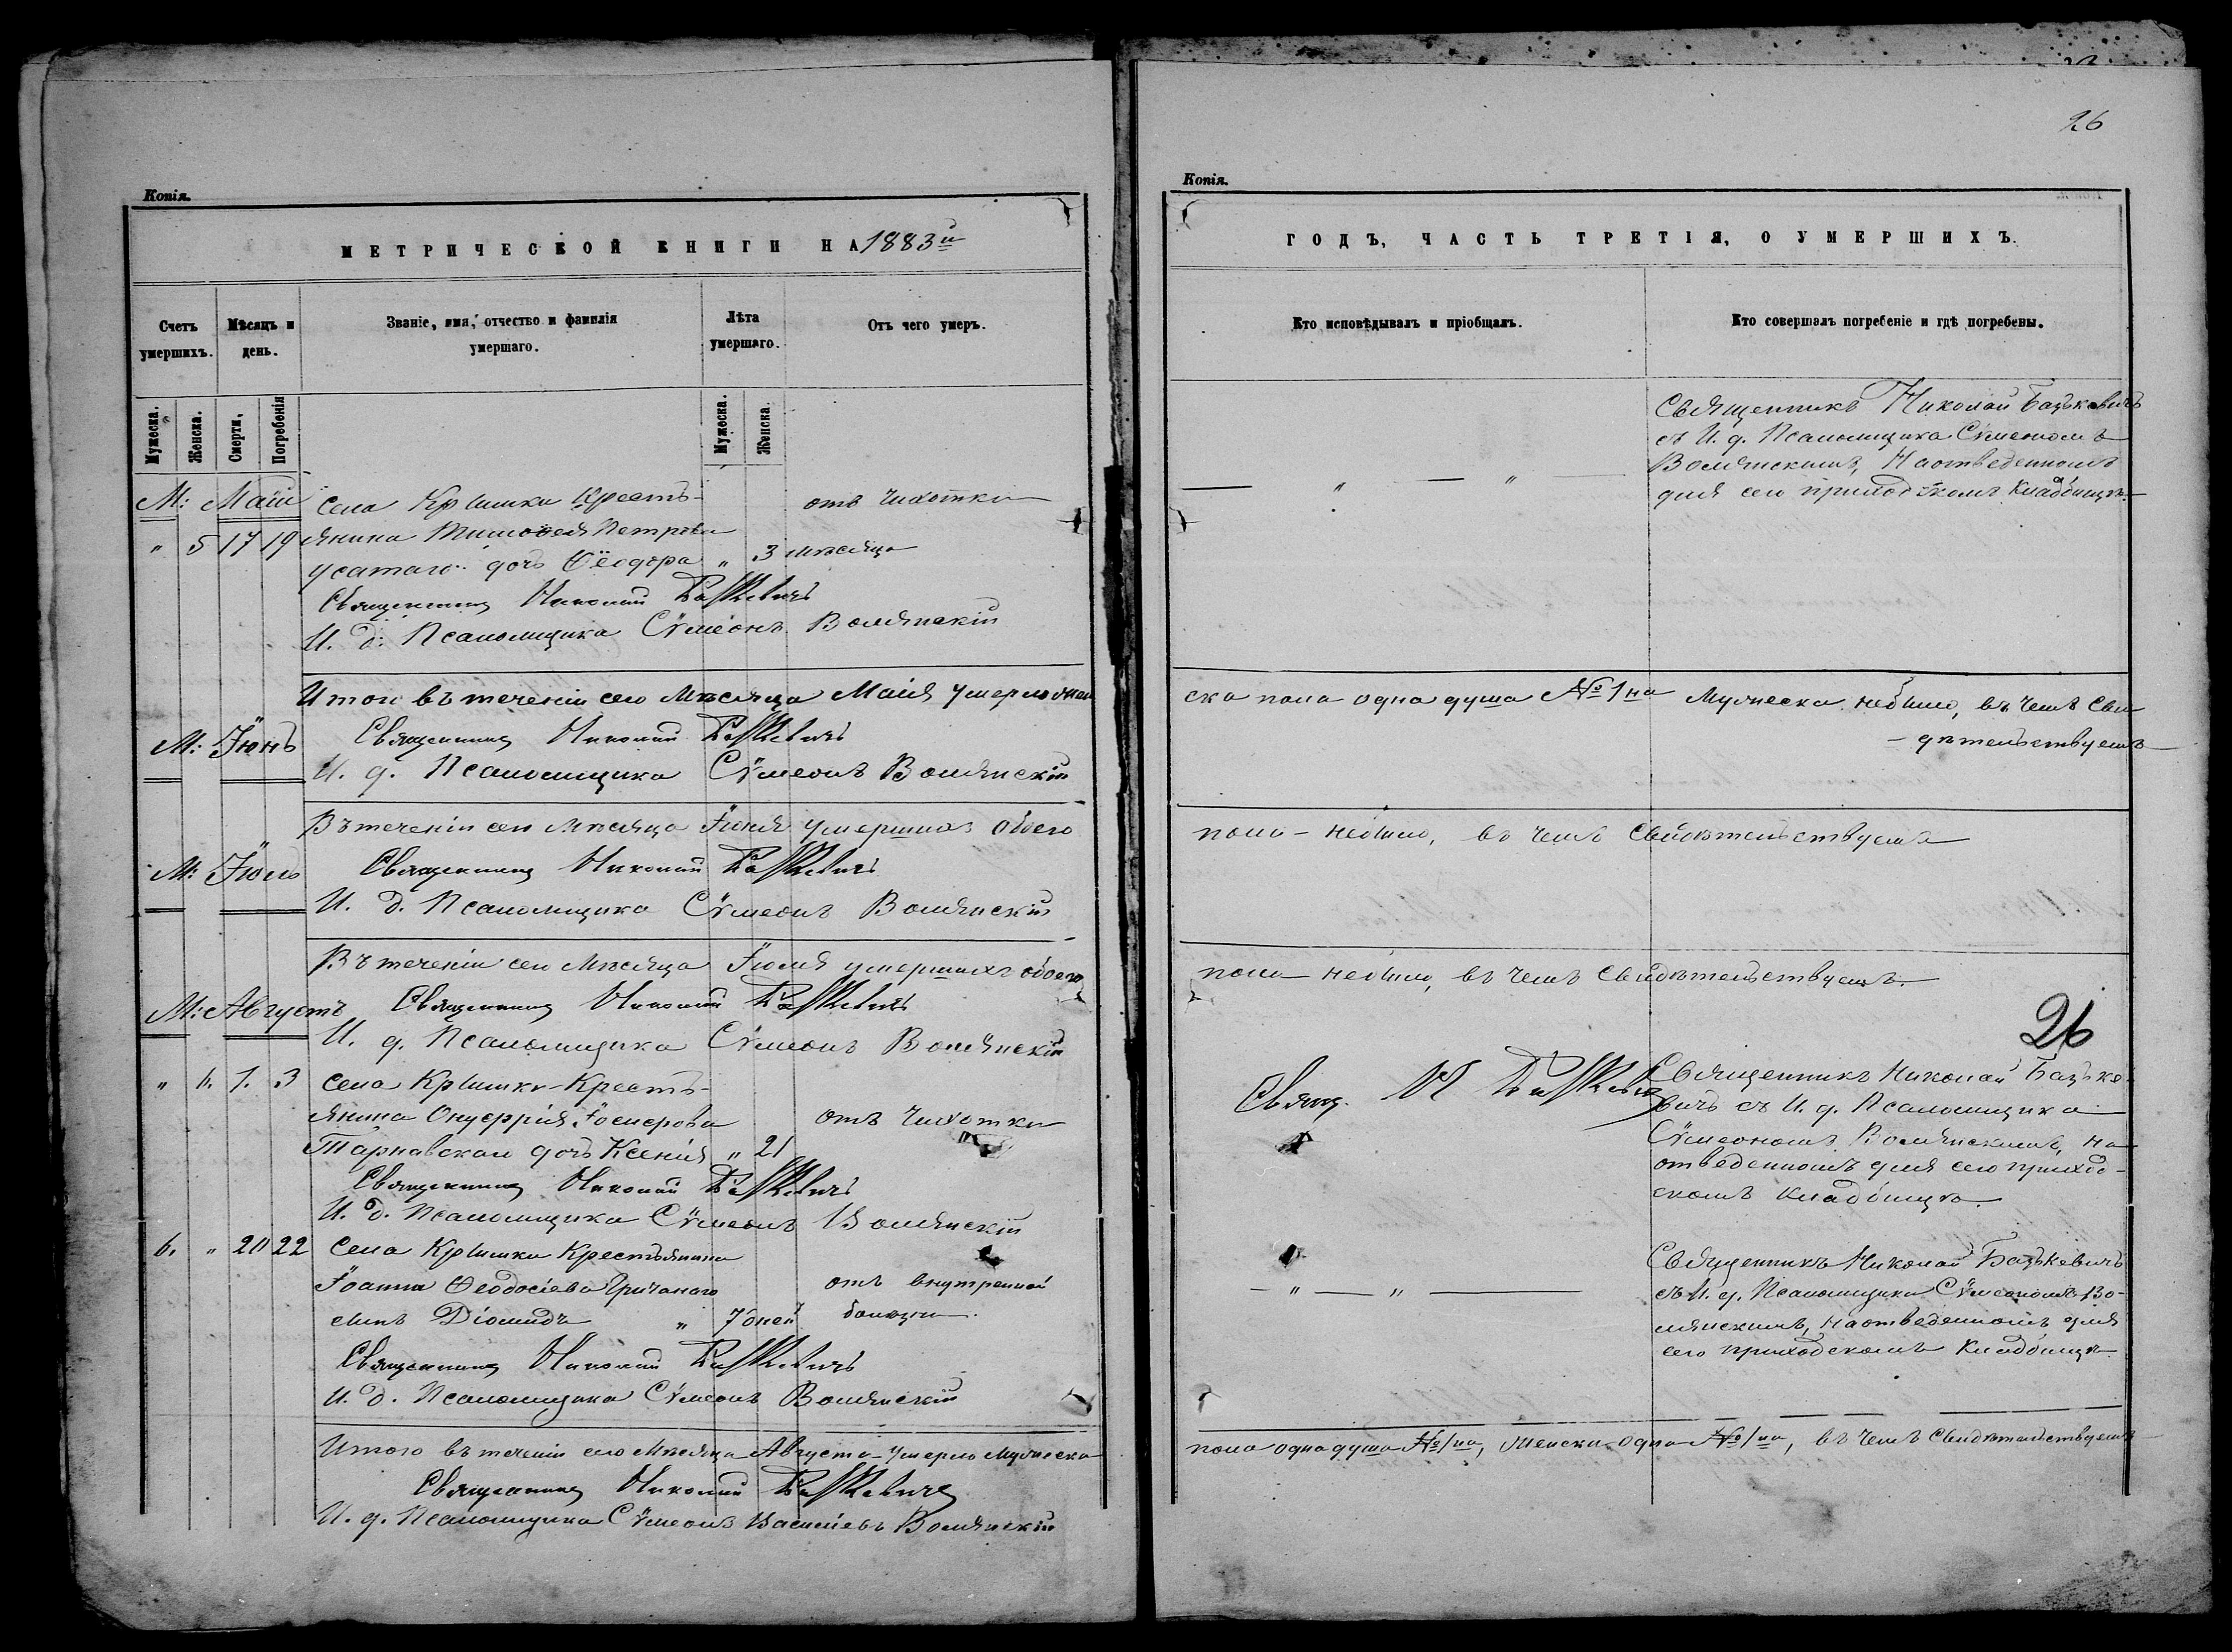 26
Копія.
МЕТРИЧЕСКОЙ КНИГИ НА 1883й
Счетъ умершихъ.
Мѣсяцъ и день.
Званіе, имя, отчество и фамилія умершаго.
Лѣта умершаго.
Отъ чего умеръ.
Мужеска.
Женска.
Смерти.
Погребенія
Мужеска.
Женска.
М: Маій
села Кришки Крестъ-
отъ чихотки
" 5 17 19
янина Тимоѳея Петрова
усатаго дочь Ѳеодора " 3 мѣсяца
Священникъ Николай Бацкевичъ
И. д. Псаломщика Сѵмеонъ Волянскій
Итого въ теченіи сего Мѣсяца Маія умерло жен
М: Іюнь
Священникъ Николай Бацкевичъ
И. д. Псаломщика Сѵмеонъ Волянскій
Въ теченіи сего Мѣсяца Іюня умершихъ обоего
М: Іюль
Священникъ Николай Бацкевичъ
И. д. Псаломщика Сѵмеонъ Волянскій
Въ теченіи сего Мѣсяца Іюля умершихъ обоего
М: Августъ
Священникъ Николай Бацкевичъ
И. д. Псаломщика Сѵмеонъ Волянскій
" 6. 1. 3 села Кришки Крестъ-
янина Онуфрія
отъ чихотки
Тарнавскаи дочь Ксенія " 21
Священникъ Николай Бацкевичъ
И. д. Псаломщика Сѵмеонъ Волянскій
6. " 20 22 Села Кришки Крестьянина
Іоанна Ѳеодосіева Гричанаго
отъ внутренной
сынъ Діомидъ " 7 дней
болѣзни.
Священникъ Николай Бацкевичъ
И. д. Псаломщика Сѵмеонъ Волянскій
Итого въ теченіи сего Мѣсяца Августа умерло Мужеска
Священникъ Николай Бацкевичъ
И. д. Псаломщика Сѵмеонъ Васильевъ Волянскій
Копія.
ГОДЪ, ЧАСТЬ ТРЕТІЯ, О УМЕРШИХЪ.
Кто исповѣдывалъ и пріобщалъ.
Кто совершалъ погребеніе и гдѣ погребены.
Священникъ Николай Бацькевичъ
съ И. д. Псаломщика Сѵмеономъ
Волянскимъ, На отведенномъ
— " — " —
для сего приходскомъ Кладбищѣ.
ска пола одна душа № 1на Мужеска небыло, въ чемъ Сви
- дѣтельствуемъ
пола - небыло, въ чемъ Свидѣтельствуемъ
пола небыло, въ чемъ Свидѣтельствуемъ.
26
Свящ. Н Бацкевичъ
Священникъ Николай Бацьке-
вичъ съ И. д. Псаломщика
Сѵмеономъ Волянскимъ, на
отведенномъ для сего приход-
скомъ Кладбищѣ.
Священникъ Николай Бацькевичъ
— " — " —
съ И. д. Псаломщика Сѵмеономъ Во-
лянскимъ, на отведенномъ для
сего приходскомъ Кладбищѣ.
пола одна душа № 1на, женска одна № 1на, въ чемъ Свидѣтельствуемъ